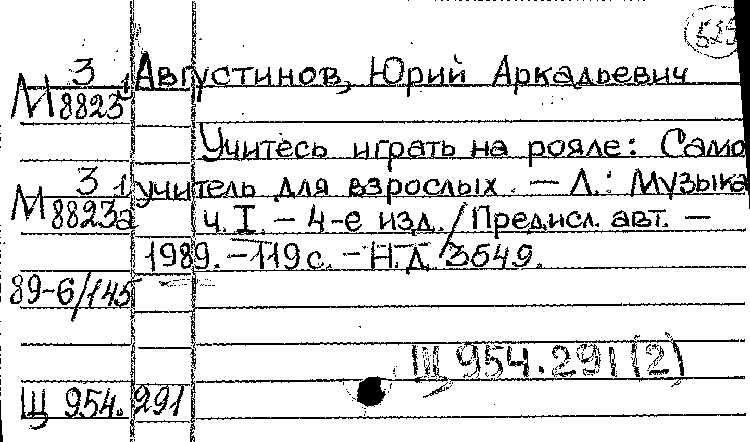 525
М 3/8823 1
Августинов, Юрий Аркадьевич
Учитесь играть на рояле: Само
М 3/8823а 1
учитель для взрослых. — Л.: Музыка
ч. I. – 4-е изд. / Предисл. авт. –
1989. – 119 с. – Н.Д. 3549.
89-6/145
Щ 954.291 (2)
Щ 954.291